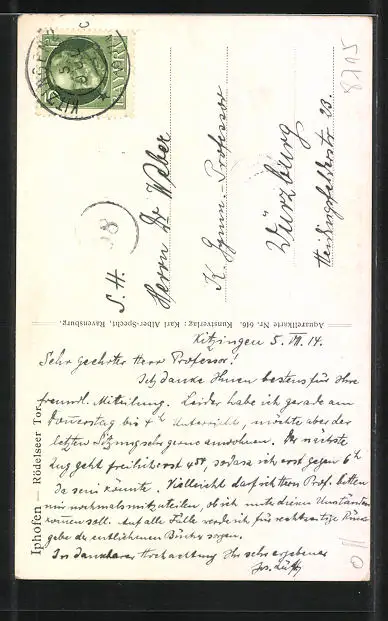 S. H.
Herrn Dr Weber
K. Gymn.-Professor
Würzburg
Heidingsfelderstr. 23.
BAYERN
KITZINGEN
Aquarellkarte Nr. 646. Kunstverlag: Karl Alber-Specht, Ravensburg.
Iphofen — Rödelseer Tor.
Kitzingen 5. VII. 14.
Sehr geehrter Herr Professor!
Ich danke Ihnen bestens für Ihre
freundl. Mitteilung. Leider habe ich gerade am
Donnerstag bis 4h Unterricht, möchte aber der
letzten Sitzung sehr gerne anwohnen. Der nächste
Zug geht freilich erst, sodass ich erst gegen 6h
da sein könnte. Vielleicht darf ich Herrn Prof. bitten
mir nochmals mitzuteilen, ob ich unter diesen Umständen
kommen soll. Auf alle Fälle werde ich für rechtzeitige Rück-
gabe der entliehenen Bücher sorgen.
In dankbarer Hochachtung Ihr sehr ergebener
Jos.